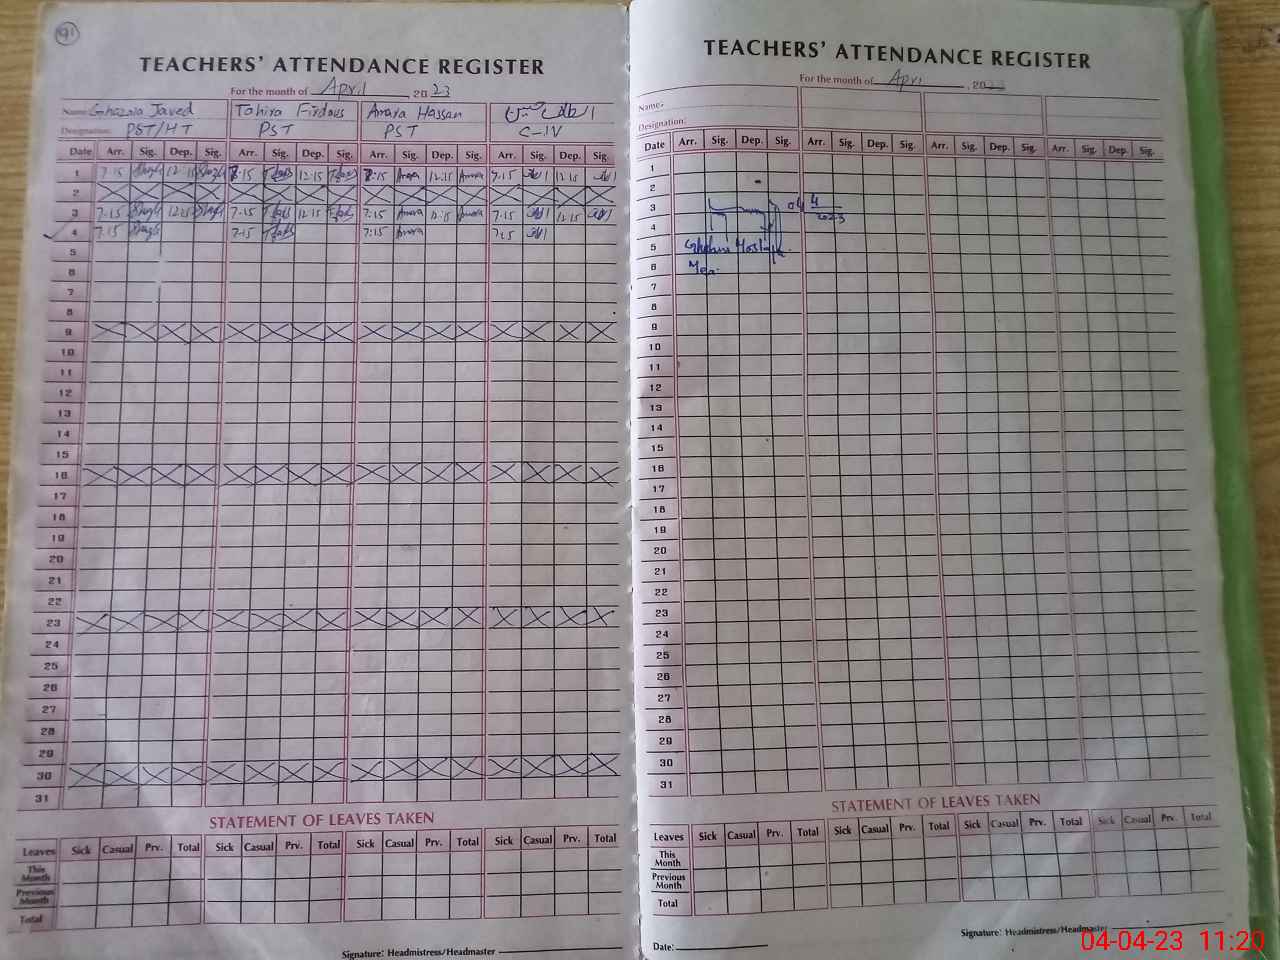 91
TEACHERS' ATTENDANCE REGISTER
For the month of April, 2023
Name: Ghazala Javed Tahira Firdous Amara Hassan
Designation: PST/HT PST PST C-IV
Date Arr. Sig. Dep. Sig. Arr. Sig. Dep. Sig. Arr. Sig. Dep. Sig. Arr. Sig. Dep. Sig.
1 7.15 12.15 7.15 12.15 7.15 Amara 12.15 Amara 7.15 12.15
2
3 7.15 12.15 7.15 12.15 7.15 Amara 12.15 Amara 7.15 12.15
4 7.15 7.15 7.15 Amara 7.15
5
6
7
8
9
10
11
12
13
14
15
16
17
18
19
20
21
22
23
24
25
26
27
28
29
30
31
STATEMENT OF LEAVES TAKEN
Leaves Sick Casual Prv. Total Sick Casual Prv. Total Sick Casual Prv. Total Sick Casual Prv. Total
This Month
Previous Month
Total
Signature: Headmistress/Headmaster
TEACHERS' ATTENDANCE REGISTER
For the month of April, 2023
Name:
Designation:
Date Arr. Sig. Dep. Sig. Arr. Sig. Dep. Sig. Arr. Sig. Dep. Sig. Arr. Sig. Dep. Sig.
1
2
3 04 4
4 2023
5
6 Mea.
7
8
9
10
11
12
13
14
15
16
17
18
19
20
21
22
23
24
25
26
27
28
29
30
31
STATEMENT OF LEAVES TAKEN
Leaves Sick Casual Prv. Total Sick Casual Prv. Total Sick Casual Prv. Total Sick Casual Prv. Total
This Month
Previous Month
Total
Signature: Headmistress/Headmaster
Date:
04-04-23 11:20